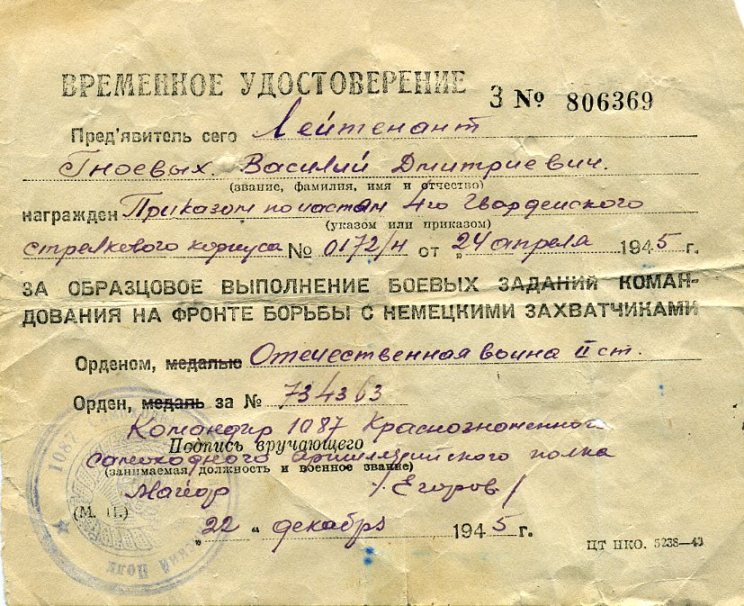 ВРЕМЕННОЕ УДОСТОВЕРЕНИЕ
З № 806369
Пред'явитель сего Лейтенант
Гноевых. Василий Дмитриевич.
(звание, фамилия, имя и отчество)
награжден Приказом по частям 4го Гвардейского
(указом или приказом)
стрелкового корпуса № 0172/н от „24 апреля 1945 г.
ЗА ОБРАЗЦОВОЕ ВЫПОЛНЕНИЕ БОЕВЫХ ЗАДАНИЙ КОМАН-
ДОВАНИЯ НА ФРОНТЕ БОРЬБЫ С НЕМЕЦКИМИ ЗАХВАТЧИКАМИ
Орденом, медалью Отечественная воина II ст.
Орден, медаль за № 734363
Командир 1087 Краснознаменного
Подпись вручающего
самоходного артиллерийского полка
(занимаемая должность и военное звание)
Майор /Егоров/
(М. П.)
„22 “ декабрь 1945 г.
ЦТ НКО. 5238—43
1087
полк